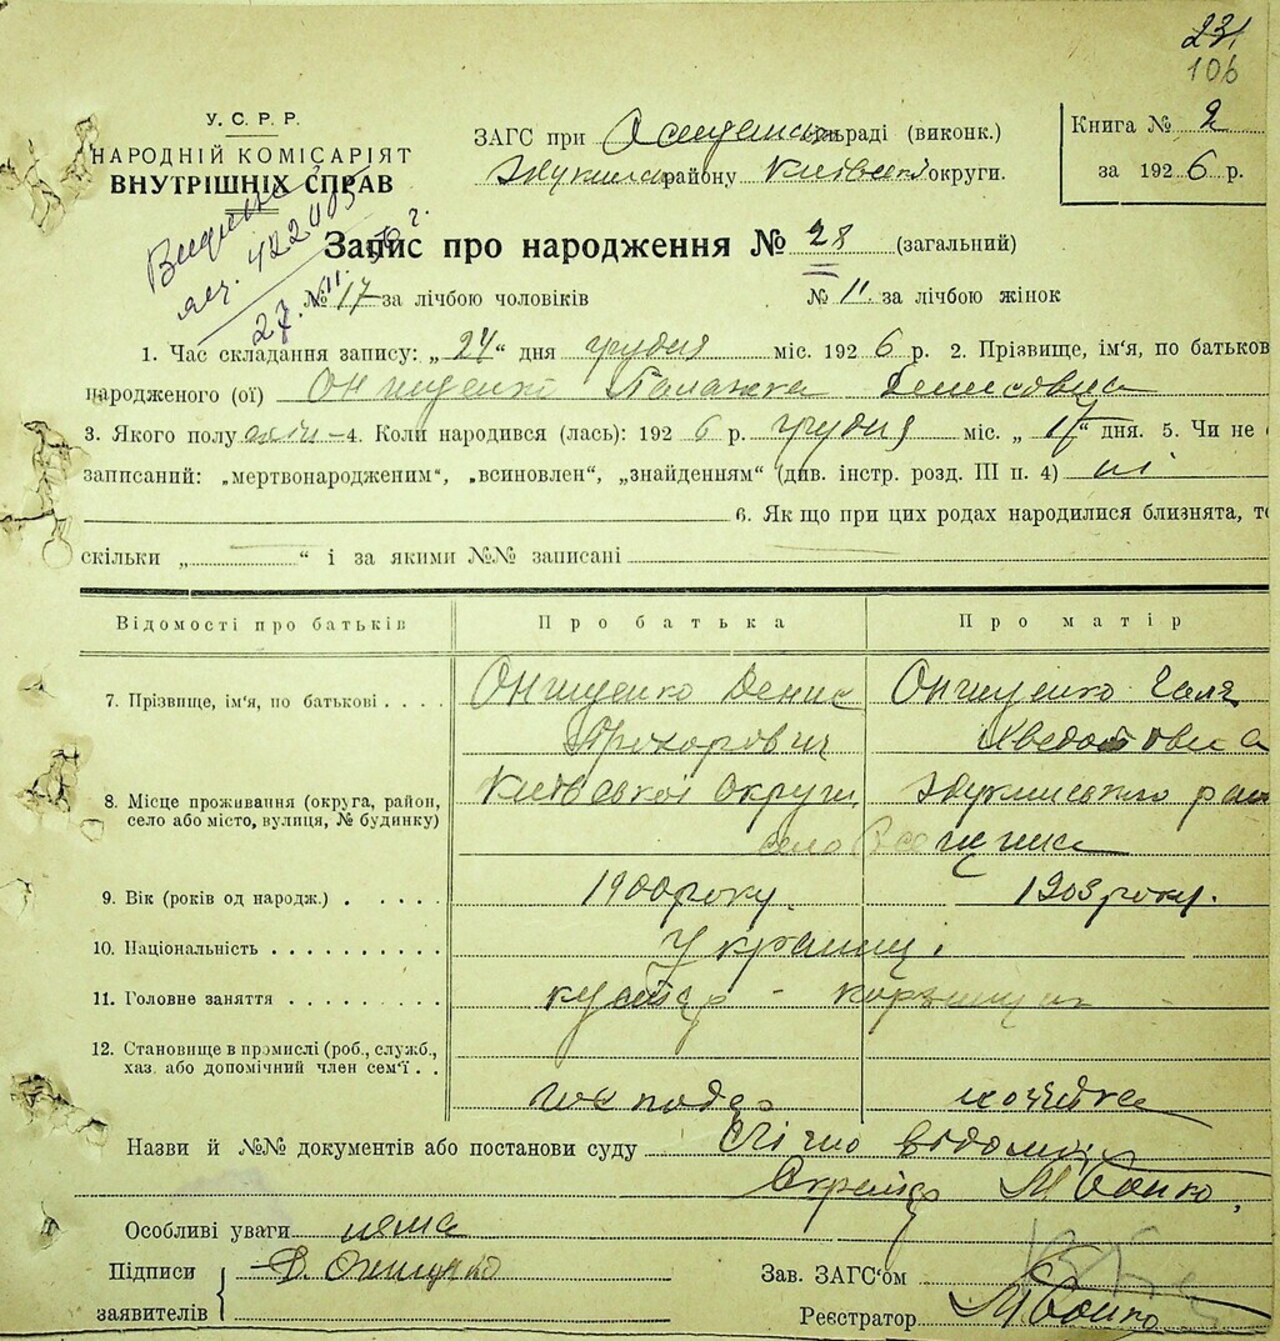 231
106
У. С. Р. Р.
НАРОДНІЙ КОМІСАРІЯТ
ВНУТРІШНІХ СПРАВ
ЗАГС при раді (виконк.)
району Київської округи.
Книга № 2
за 1926 р.
Запис про народження № 28 (загальний)
27. III.
№ 17 за лічбою чоловіків № 11 за лічбою жінок
1. Час складання запису: „24“ дня грудня міс. 1926 р. 2. Прізвище, ім'я, по батьков
народженого (ої) Онищенко Палажка Денисовна
3. Якого полу жін – 4. Коли народився (лась): 1926 р. грудня міс. „17“ дня. 5. Чи не
записаний: „мертвонародженим“, „всиновлен“, „знайденням“ (див. інстр. розд. III п. 4) ні
6. Як що при цих родах народилися близнята, то
скільки „ “ і за якими №№ записані
Відомості про батьків Про батька Про матір
7. Прізвище, ім'я, по батькові Онищенко Денис Онищенко Галя
Прохорович Хведотовна
8. Місце проживання (округа, район, Київської округи
село або місто, вулиця, № будинку) село
9. Вік (років од народж.) 1900 року. 1903 року.
10. Національність Українці
11. Головне заняття кустар -
12. Становище в промислі (роб., служб.,
хаз. або допомічний член сем'ї
господар хозяйка
Назви й №№ документів або постанови суду Лічно відомі
Секретар М Бойко,
Особливі уваги нема
Підписи Д. Онищенко
заявителів
Зав. ЗАГС'ом
Реєстратор М Бойко